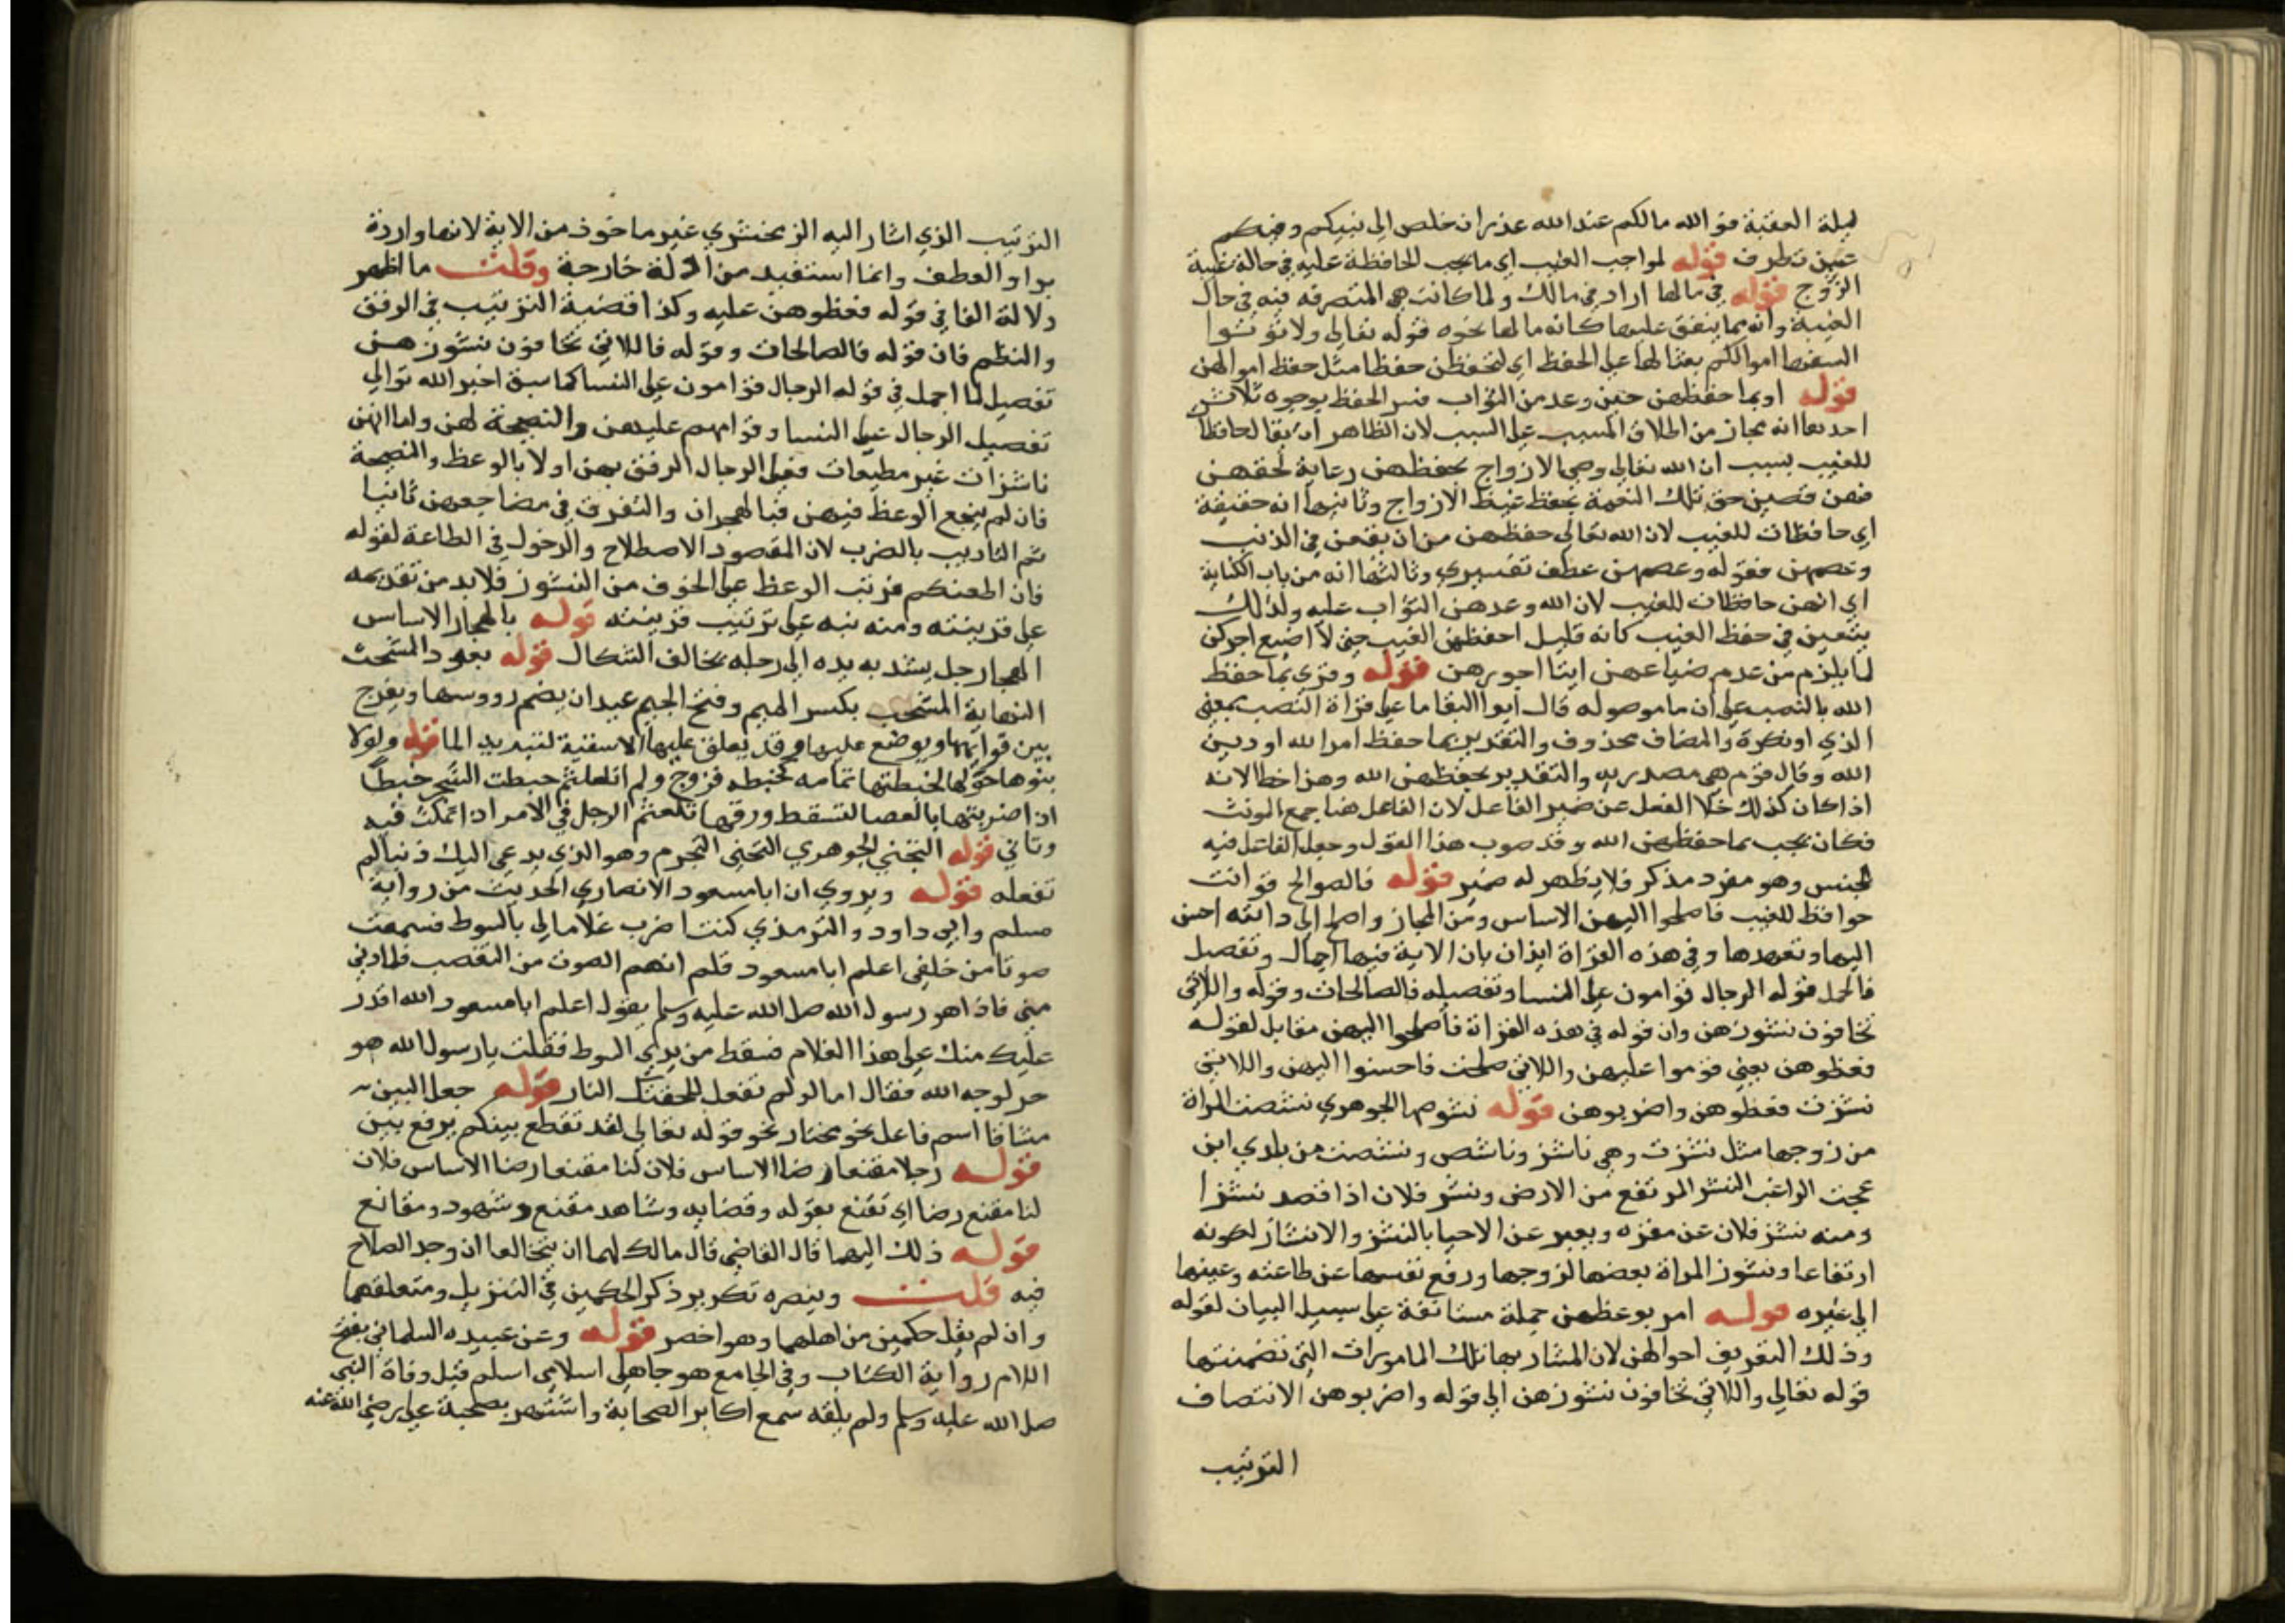 ليلة العقبة فوالله مالكم عند الله عذر ان خلص الى نبيكم وفيكم
عين تطرف قوله لمواجب الغيب اي ما يجب المحافظة عليه في حالة غيبة
الزوج قوله في مالها اراد في مالك ولما كانت هي المتصرفه فيه في حال
الغيبة وانه مما ينفق عليها كانه مالها نحوه قوله تعالى ولا تؤتوا
السفها اموالكم بعثا لها على الحفظ اي لتحفظن حفظا مثل حفظ اموالهن
قوله او بما حفظهن حين وعدهن الثواب فسر الحفظ بوجوه ثلاث
احدها انه مجاز من اطلاق المسبب على السبب لان الظاهر ان يقال حافظات
للغيب بسبب ان الله تعالى وصى الازواج بحفظهن رعاية لحقهن
فهن قضين حق تلك النعمة بحفظ غيظ الازواج وثانيها انه حقيقة
اي حافظات للغيب لان الله تعالى حفظهن من ان يقعن في الذنب
وعصمهن فقوله وعصمهن عطف تفسيري وثالثها انه من باب الكناية
اي انهن حافظات للغيب لان الله وعدهن الثواب عليه ولذلك
يتعين في حفظ الغيب كانه قليل احفظهن الغيب حتى لا اضيع اجركن
لما يلزم من عدم ضياعهن ايتا اجورهن قوله وقري بما حفظ
الله بالنصب على ان ما موصوله قال ابوا البقا ما على قراة النصب بمعنى
الذي او نكرة والمضاف محذوف والتقدير بما حفظ امر الله او دين
الله وقال قوم هي مصدريه والتقدير بحفظهن الله وهذا خطا لانه
اذا كان كذلك خلا الفعل عن ضمير الفاعل لان الفاعل هنا جمع المونث
فكان يجب بما حفظهن الله وقد صوب هذا القول وجعل الفاعل فيه
للجنس وهو مفرد مذكر فلا يظهر له ضمير قوله فالصوالح قوانت
حوافظ للغيب فاصلحوا اليهن الاساس ومن المجاز واصلح الى دابته احسن
اليها وتعهدها وفي هذه القراة ايذان بان الاية فيها اجمال وتفصيل
فالجمل قوله الرجال قوامون على النسا وتفصيله فالصالحات وقوله واللاتي
تخافون نشوزهن وان قوله في هذه القراة فاصلحوا اليهن مقابل لقوله
فعظوهن يعني قوموا عليهن واللاتي صلحت فاحسنوا اليهن واللاتي
نشزت فعظوهن واضربوهن قوله نشوصها الجوهري نشصت المراة
من زوجها مثل نشزت وهي ناشز وناشص ونشصت من بلدي اين
عجت الراغب النشز المرتفع من الارض ونشز فلان اذا قصد نشزا
ومنه نشز فلان عن مقره ويعبر عن الاحيا بالنشز والانشاز لكونه
ارتفاعا ونشوز المراة بغضها لزوجها ورفع نفسها عن طاعته وعينها
الى غيره قوله امر بوعظهن جملة مستانفة على سبيل البيان لقوله
وذلك التعريف احوالهن لان المشار بها تلك المامورات التي تضمنتها
قوله تعالى واللاتي تخافون نشوزهن الى قوله واضربوهن الانتصاف
الترتيب
الترتيب الذي اشار اليه الزمخشري غير ماخوذ من الاية لانها واردة
بواو العطف وانما استفيد من ادلة خارجة وقلت ما اظهر
دلالة الفا في قوله فعظوهن عليه وكذا قضية الترتيب في الرفق
والنظم فان قوله فالصالحات وقوله فاللاتي تخافون نشوزهن
تفصيل لما اجمل في قوله الرجال قوامون على النسا كما سبق اخبر الله توالى
تفضيل الرجال على النسا وقوامهم عليهن والنصيحة لهن ولما انهن
ناشزات غير مطيعات فعلى الرجال الرفق بهن اولا بالوعظ والنصيحة
فان لم ينجع الوعظ فيهن فبالهجران والتفرق في مضاجعهن ثانيا
ثم التاديب بالضرب لان المقصود الاصطلاح والدخول في الطاعة لقوله
فان اطعنكم فرتب الوعظ على الخوف من النشوز فلا بد من تقديمه
على قرينته ومنه نبه على ترتيب قرينته قوله بالهجار الاساس
الهجار حبل يشد به يده الى رجله يخالف الشكال قوله بعود المشجب
النهاية المشجب بكسر الميم وفتح الجيم عيدان يضم رووسها ويفرج
بين قوايمها ويوضع عليها وقد يعلق عليها الاسقية لتبريد الما قوله ولولا
بنوها حولها لخبطتها تمامه كخبطه فروج ولم اتلعثم خبطت الشجر خبطا
اذا ضربتها بالعصا لتسقط ورقها تلعثم الرجل في الامر اذا تمكث فيه
وتاني قوله التجني الجوهري التجني التجرم وهو الذي يدعي اليك ذنبا لم
تفعله قوله ويروي ان ابا مسعود الانصاري الحديث من رواية
مسلم وابي داود والترمذي كنت اضرب غلاما لي بالسوط فسمعت
صوتا من خلفي اعلم ابا مسعود فلم افهم الصوت من الغضب فلما دني
مني فاذا هو رسول الله صلى الله عليه وسلم يقول اعلم ابا مسعود الله اقدر
عليك منك على هذا الغلام فسقط من يدي السوط فقلت يا رسول الله هو
حر لوجه الله فقال اما لو لم تفعل للحفتك النار قوله جعل البين
مشاقا اسم فاعل نحو مختار نحو قوله تعالى لقد تقطع بينكم برفع بين
قوله رجلا مقنعا رضا الاساس فلان لنا مقنعا رضا الاساس فلان
لنا مقنع رضا اي تقنع بقوله وقضايه وشاهد مقنع وشهود ومقانع
قوله ذلك اليهما قال القاضي قال مالك لهما ان يتخالعا ان وجد الصلاح
فيه قلت وينصره تكرير ذكر الحكمين في التنزيل ومتعلقهما
وان لم يقل حكمين من اهلهما وهو اخصر قوله وعن عبيده السلماني بفتح
اللام رواية الكتاب وفي الجامع هو جاهلي اسلامي اسلم قبل وفاة النبي
صلى الله عليه وسلم ولم يلقه سمع اكابر الصحابة واشتهر بصحبة علي رضي الله عنه